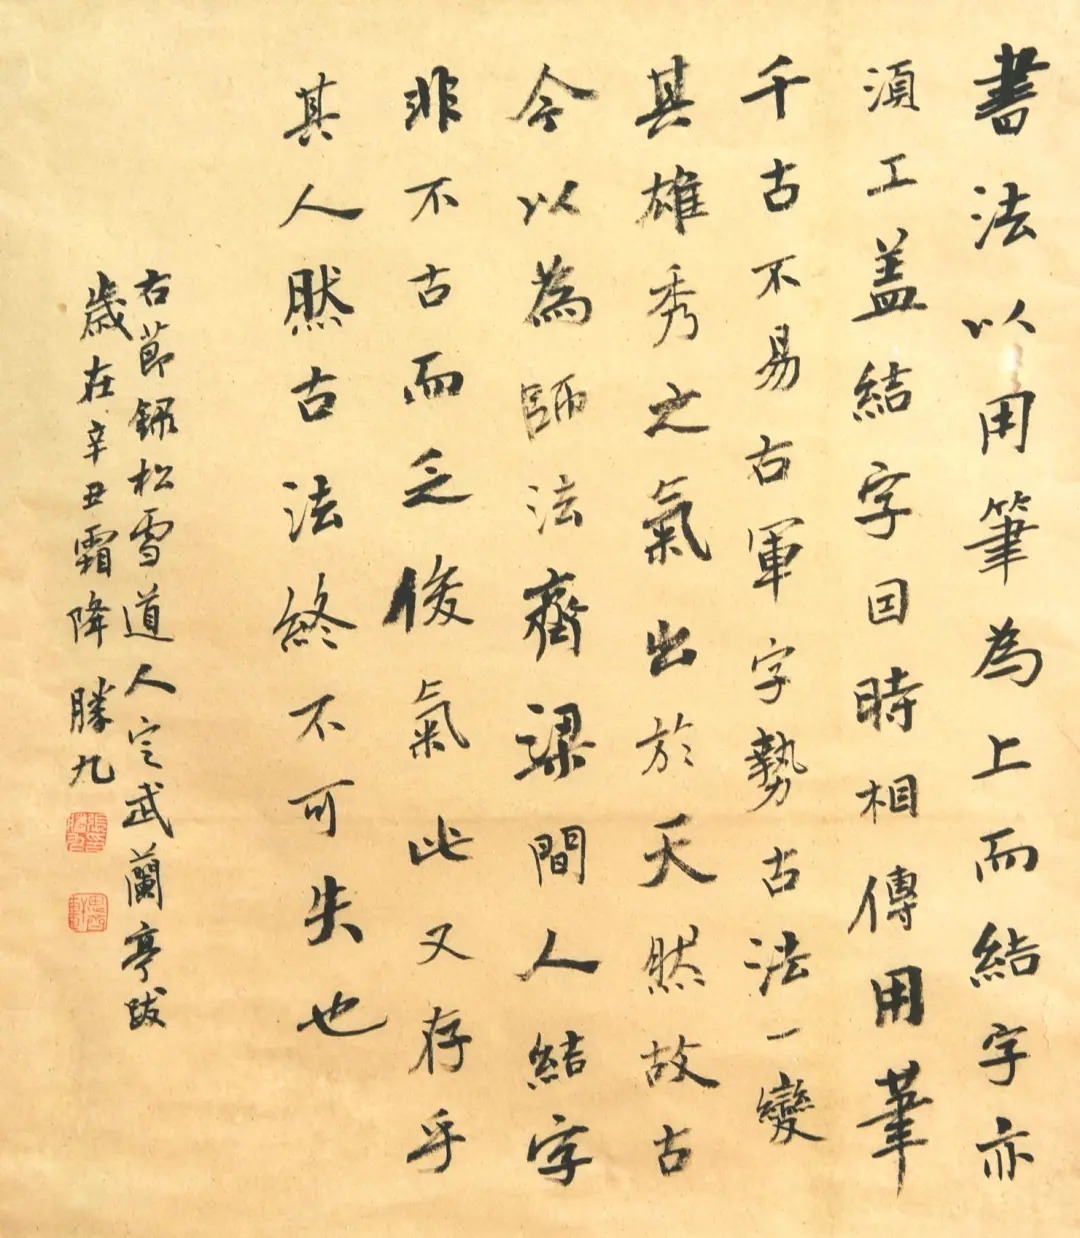 書法以用筆為上而結字亦
須工盖結字因時相傳用筆
千古不易右軍字勢古法一變
其雄秀之氣出於天然故古
今以為師法齊梁間人結字
非不古而乏俊氣此又存乎
其人然古法終不可失也
右節錄松雪道人定武蘭亭跋
歲在辛丑霜降勝九